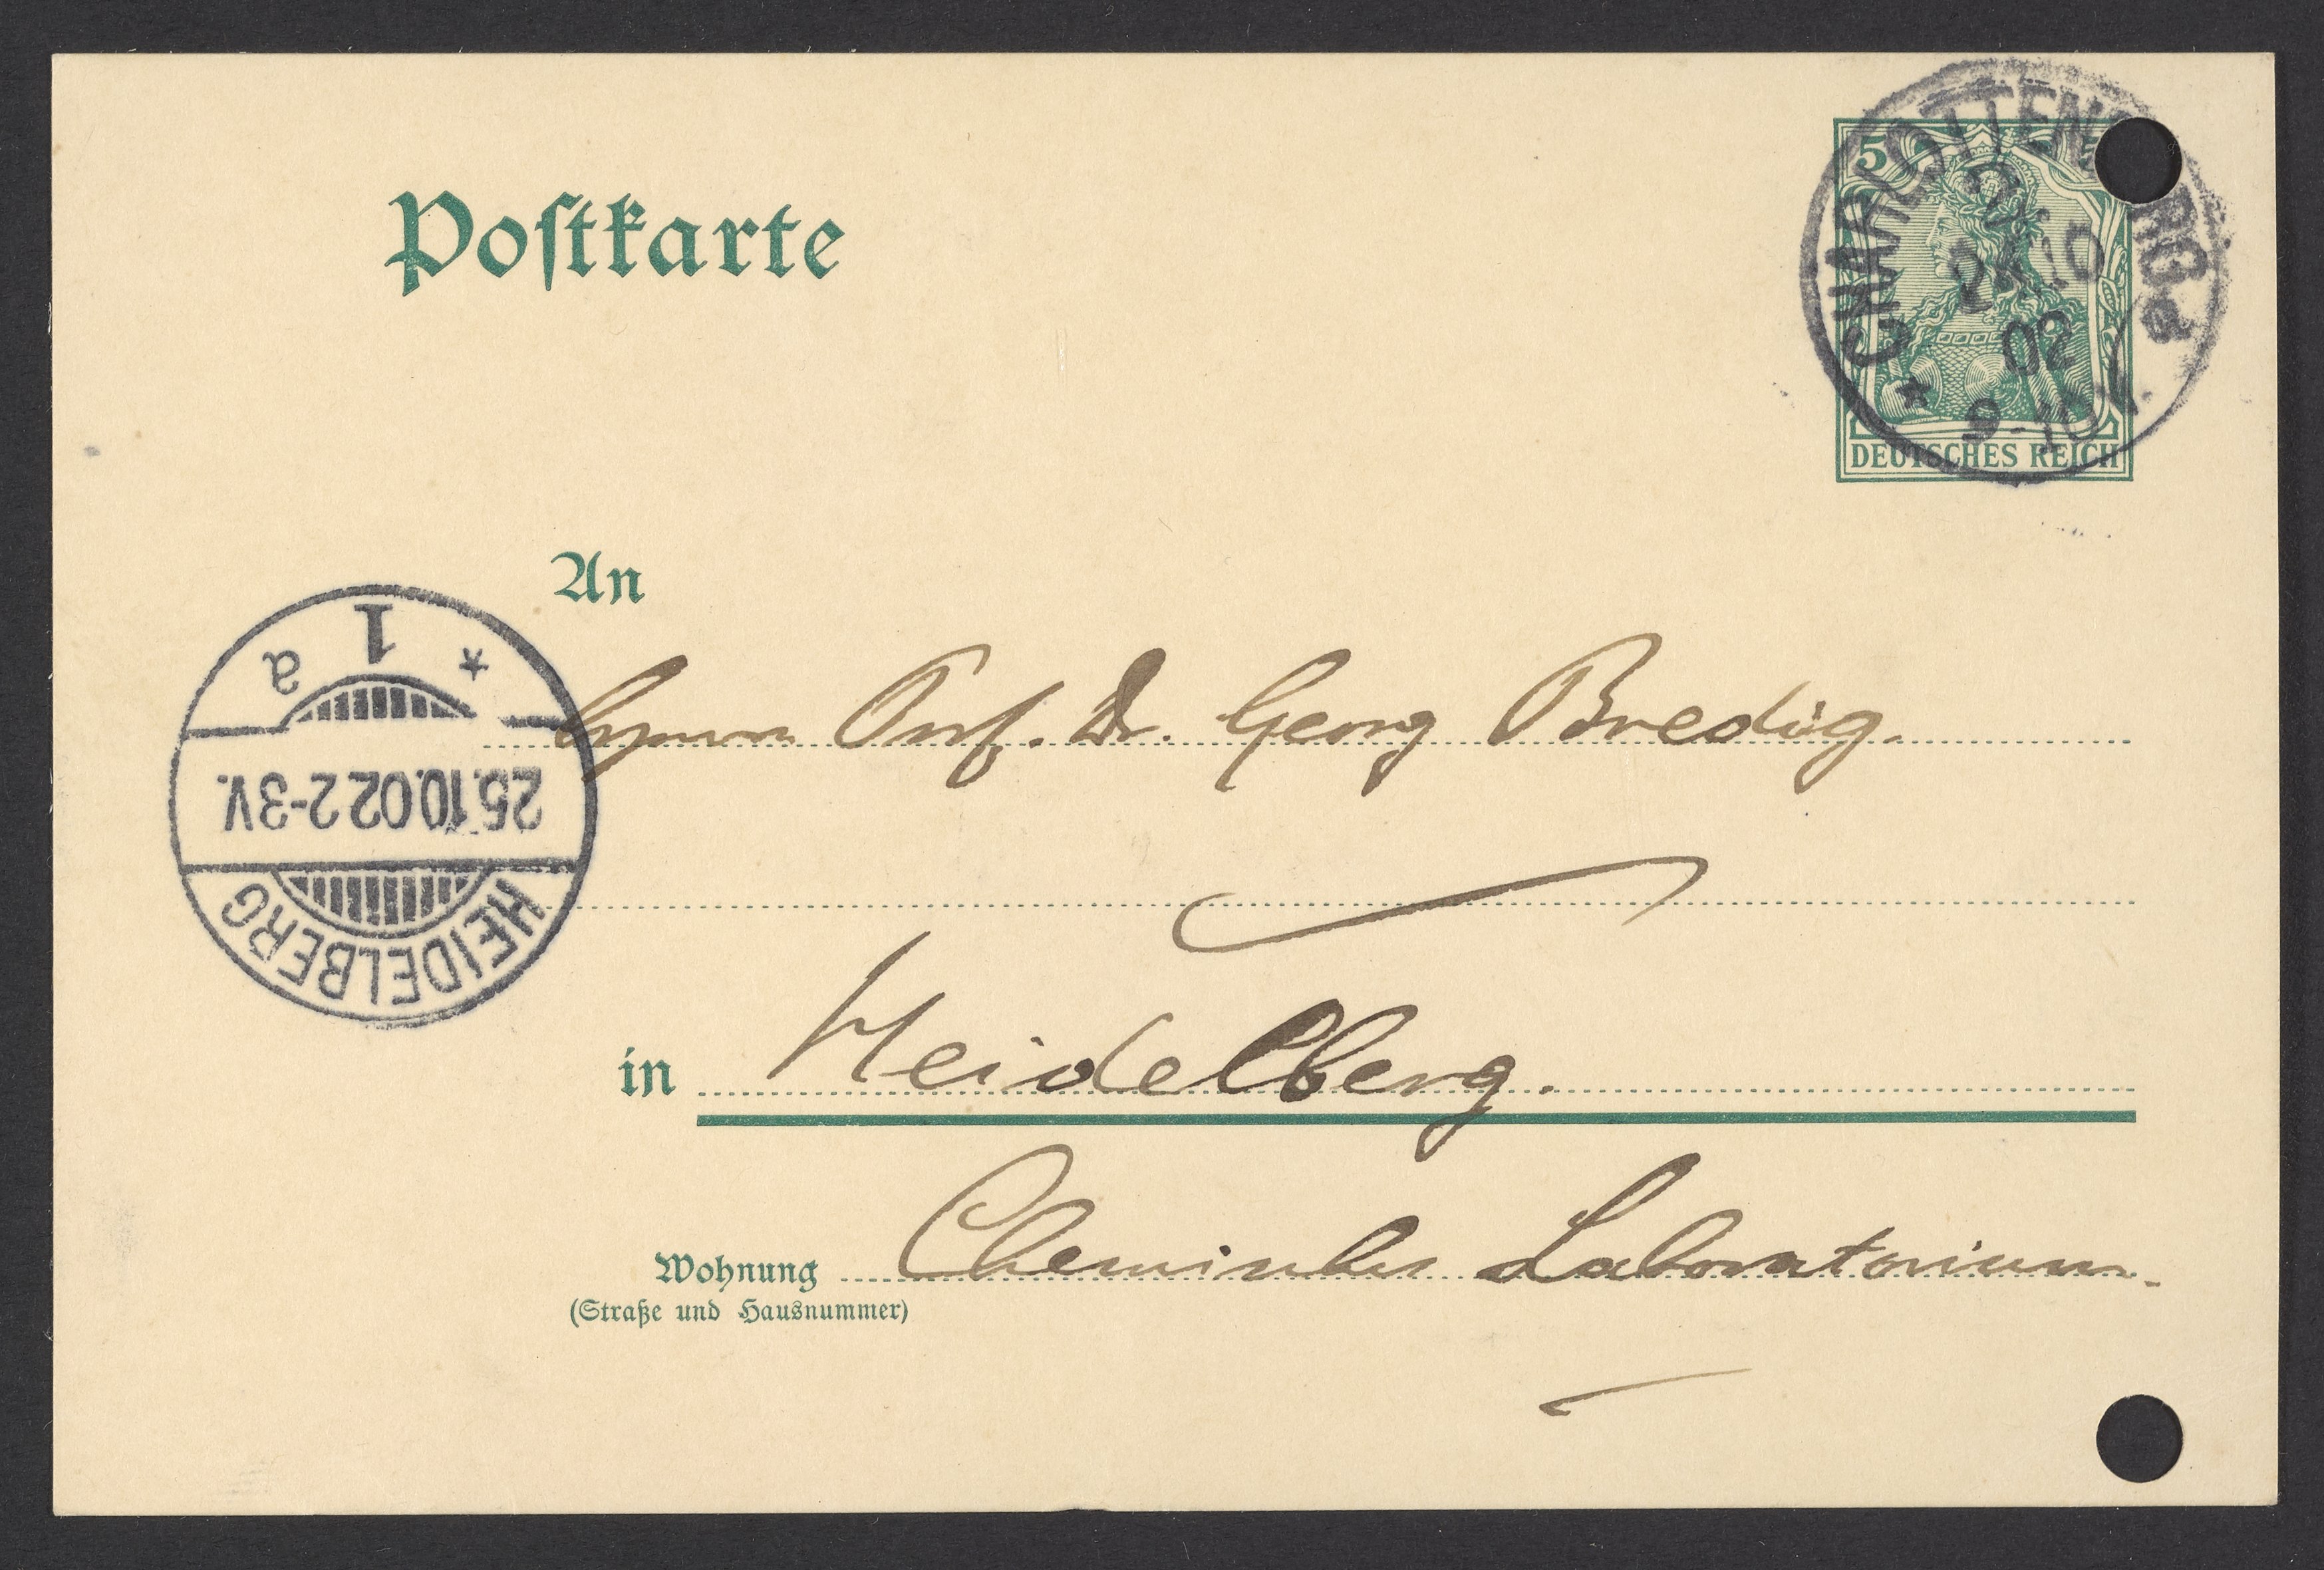 Postkarte
5
CHARLOTTENBURG
*
a
24.10
02
9-10V.
DEUTSCHES REICH
An
Herrn Prof. Dr. Georg Bredig.
1
* a
25.10.02 2-3V.
HEIDELBERG
in Heidelberg.
Wohnung Chemisches Laboratorium.
(Straße und Hausnummer)